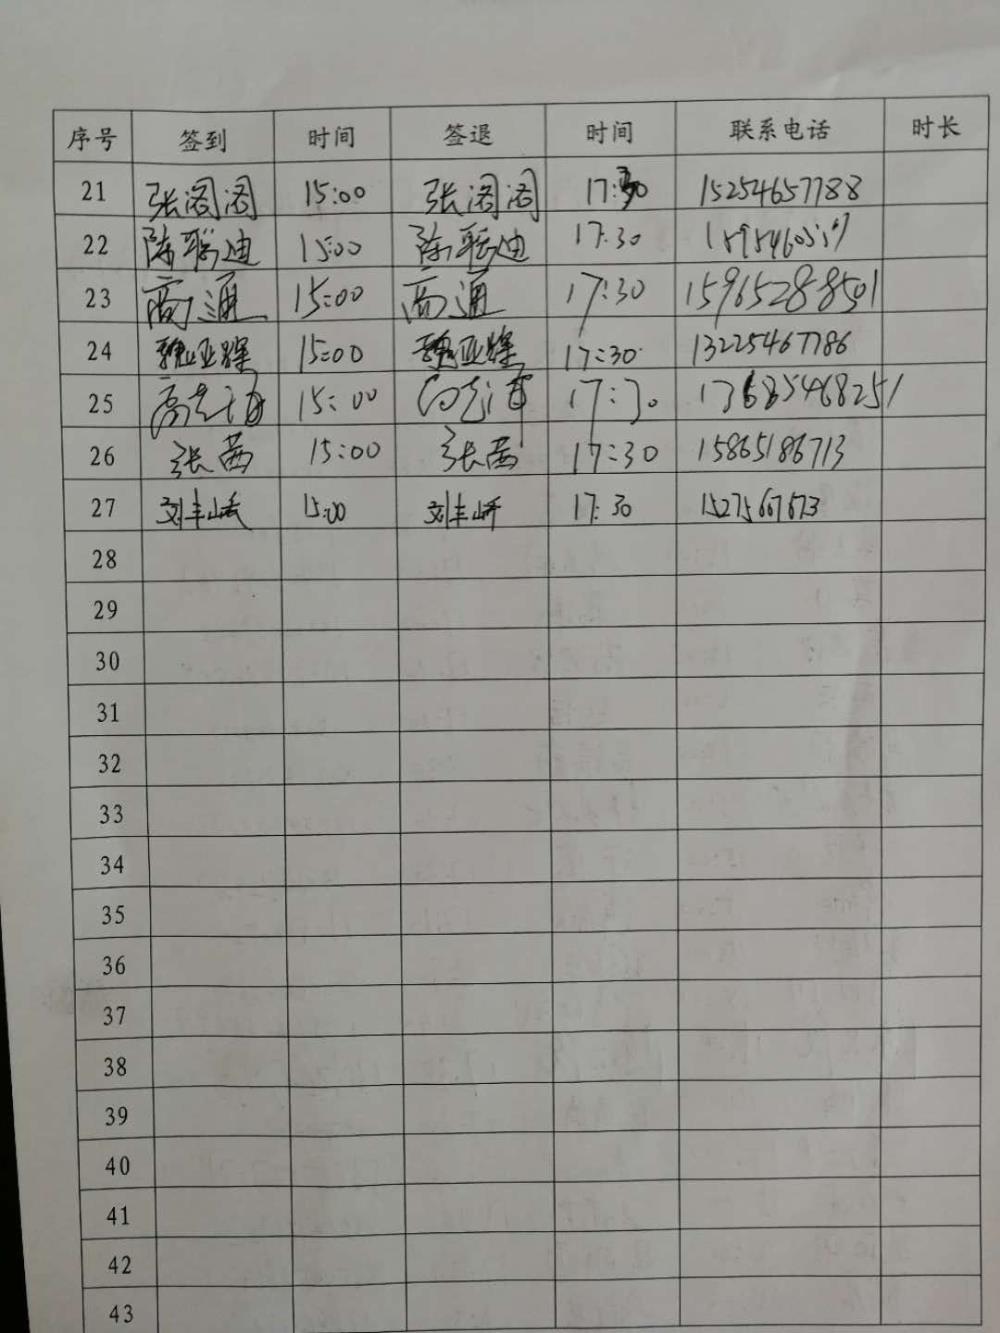 序号 签到 时间 签退 时间 联系电话 时长
21 张阁阁 15:00 张阁阁 17:30 15254657788
22 陈聪迪 15:00 陈聪迪 17:30
23 高通 15:00 高通 17:30 15965288501
24 魏亚 15:00 魏亚 17:30 13225467786
25 15:00 17:30 13685468251
26 张茜 15:00 张茜 17:30 15865186713
27 刘丰峤 15:00 刘丰峤 17:30 15275667673
28
29
30
31
32
33
34
35
36
37
38
39
40
41
42
43